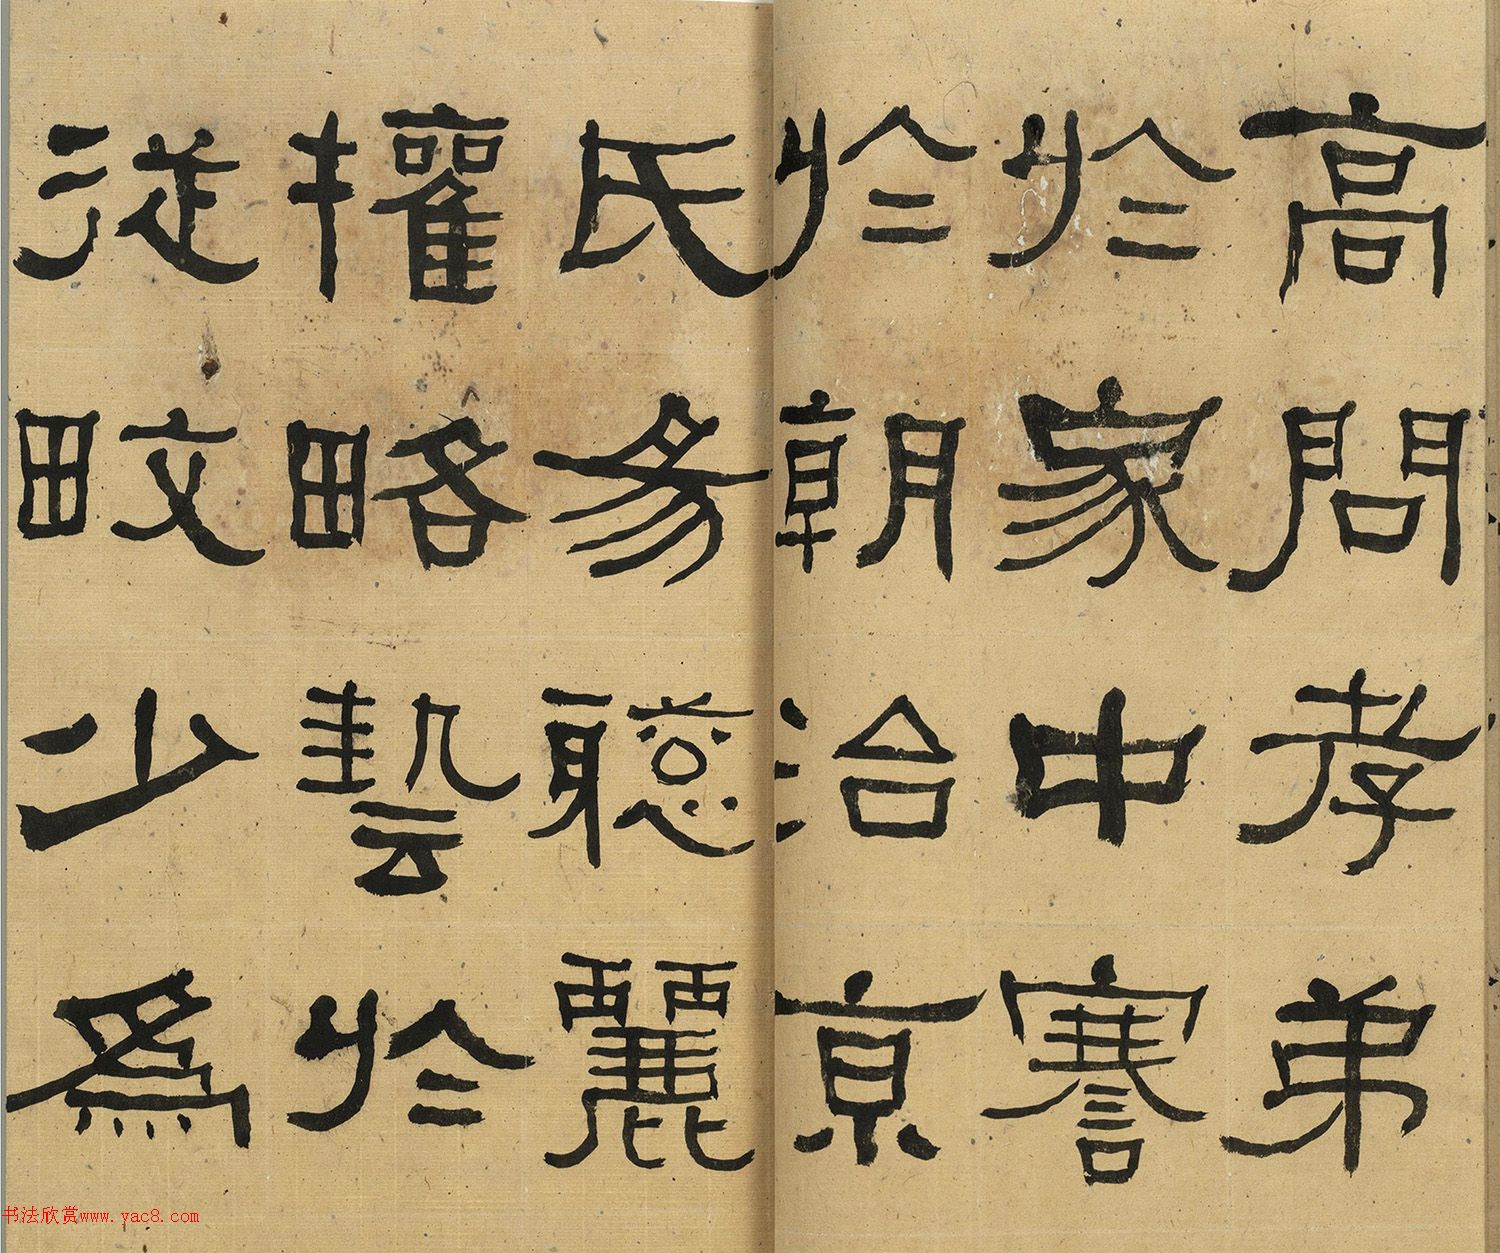 高問孝弟
於家中謇
於朝治京
氏易聰麗
權略藝於
從畋少為
书法欣赏www.yac8.com